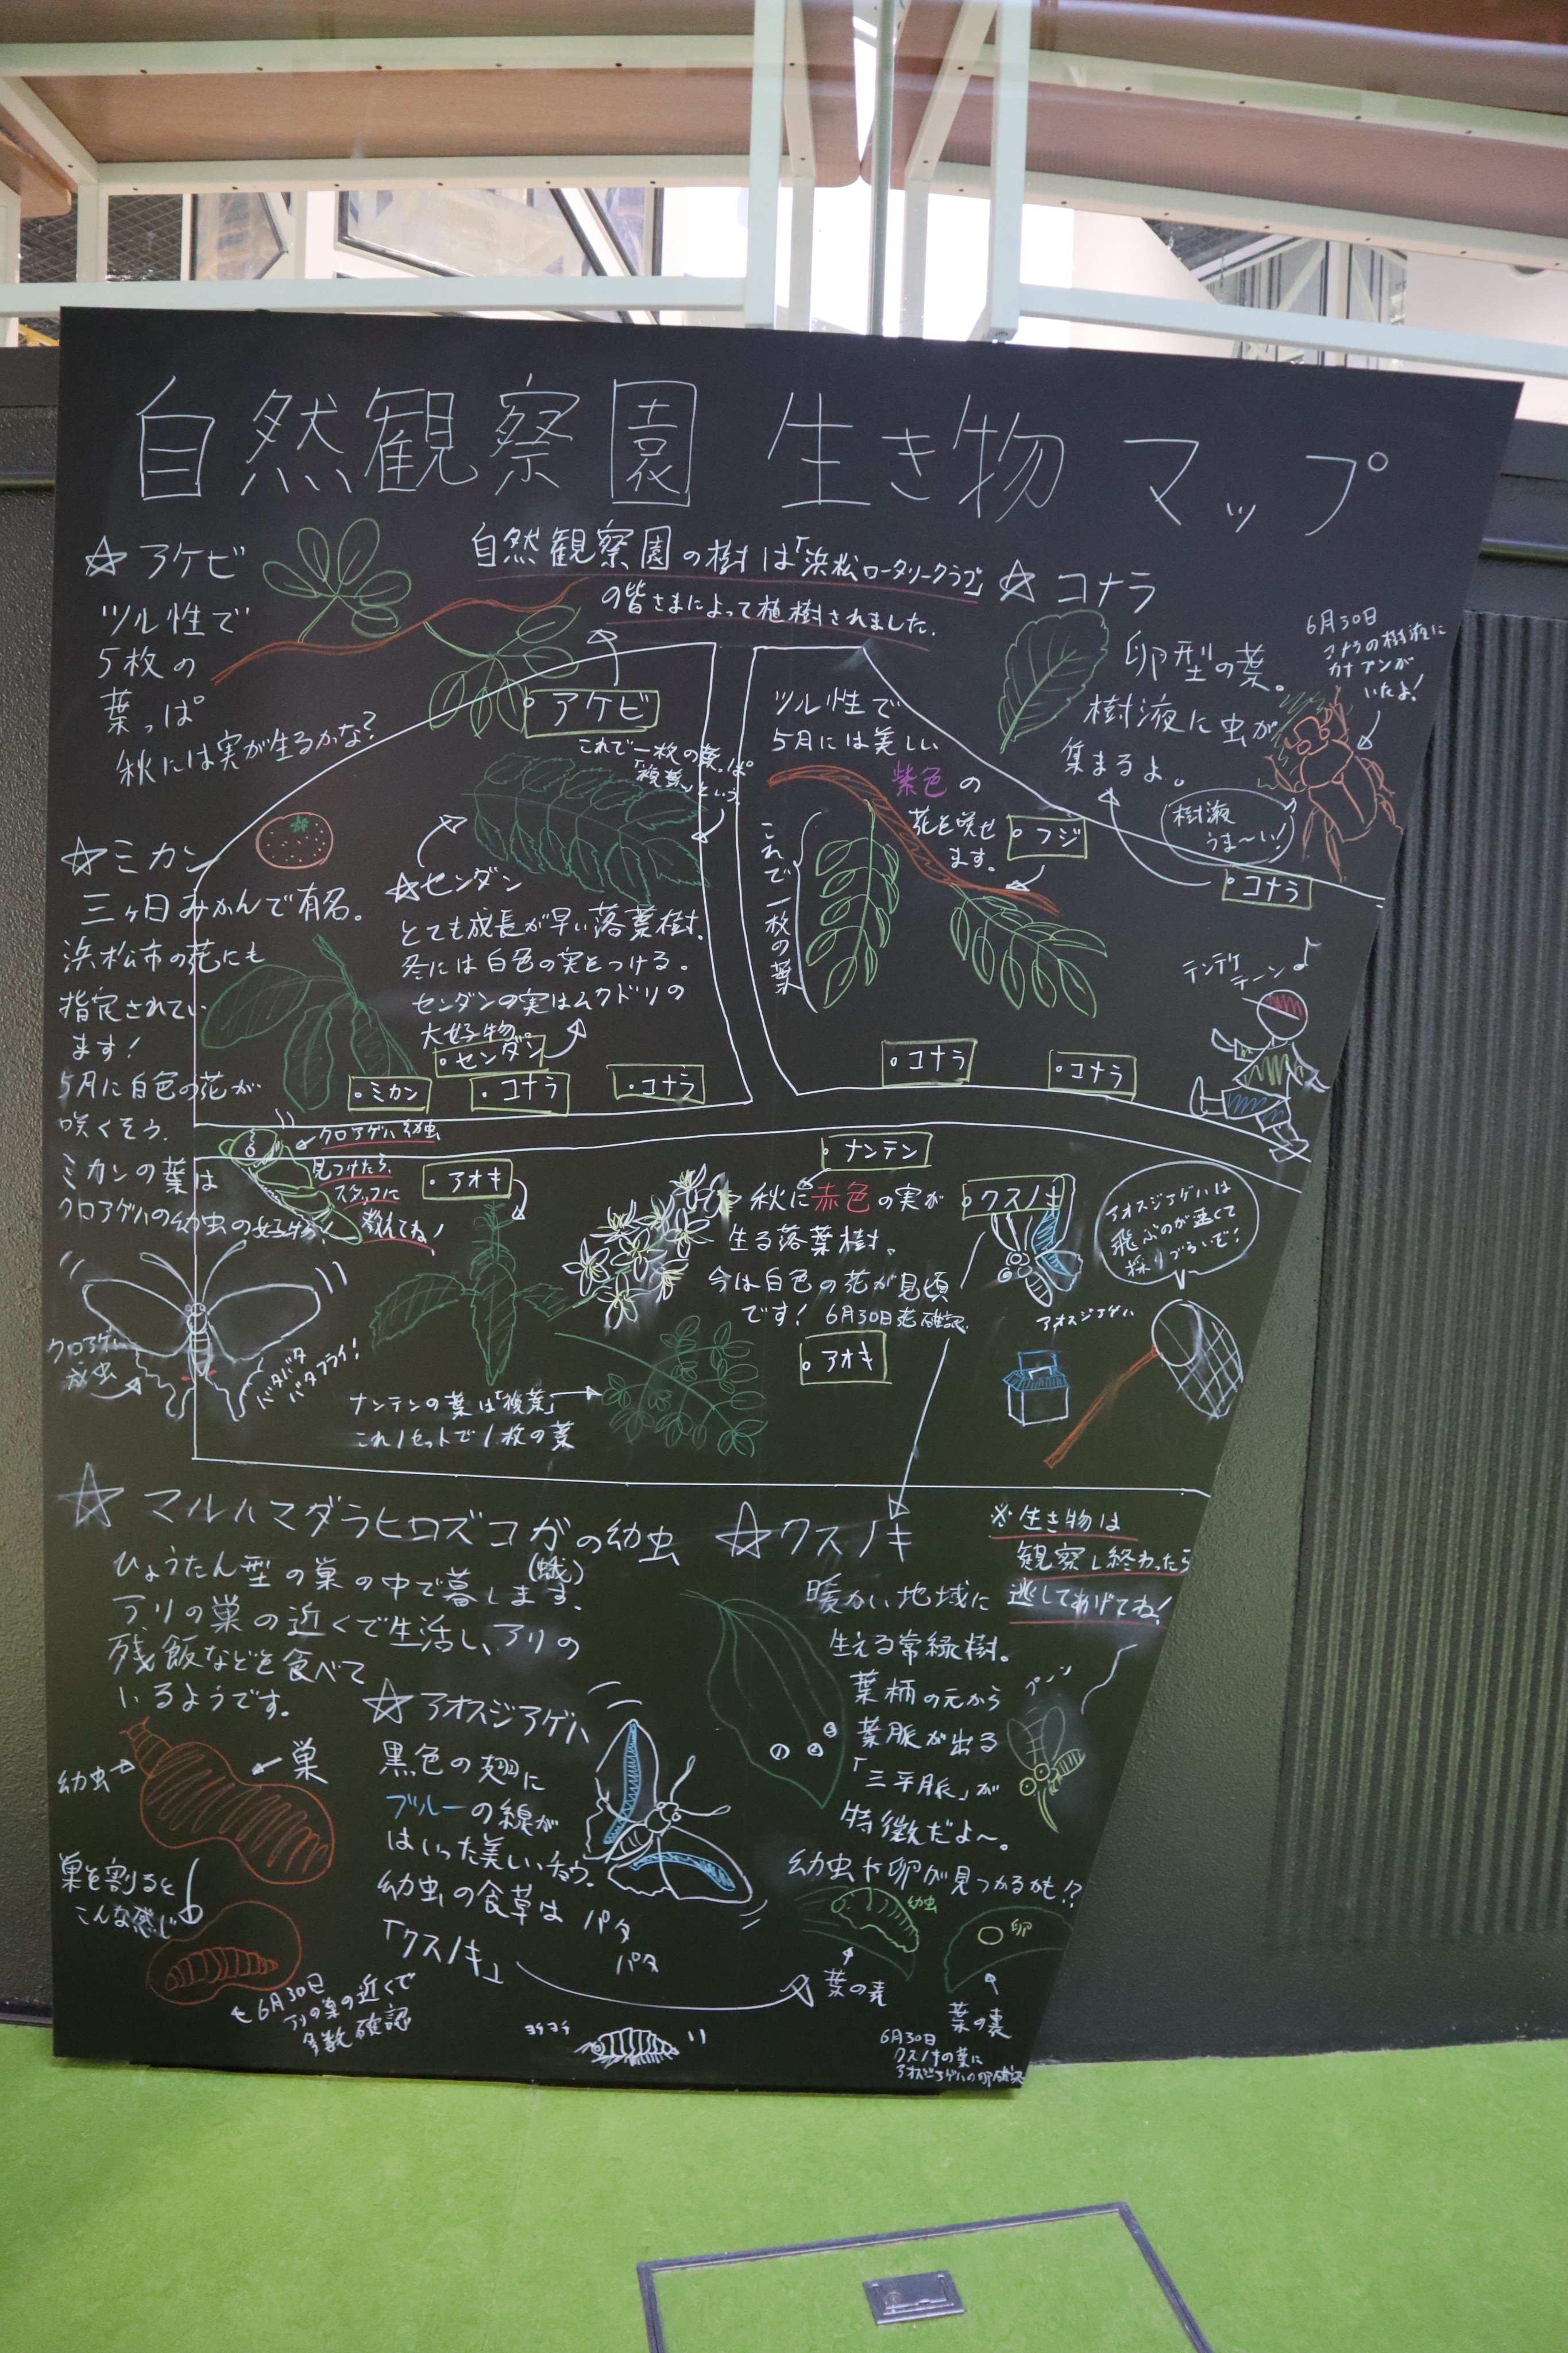 自然観察園 生き物マップ
自然観察園の樹は「浜松ロータリークラブ」
の皆さまによって植樹されました.
☆アケビ
ツル性で
5枚の
葉っぱ
秋には実が生るかな?
・アケビ
☆コナラ
卵型の葉。
樹液に虫が
集まるよ。
6月30日
コナラの樹液に
カナブンが
いたよ!
樹液
うま〜い!
・コナラ
これで一枚の葉っぱ
「複葉」という
ツル性で
5月には美しい
紫色の
花を咲せ
ます。
・フジ
これで一枚の葉
☆ミカン
三ヶ日みかんで有名。
浜松市の花にも
指定されてい
ます!
5月に白色の花が
咲くそう.
ミカンの葉は
クロアゲハの幼虫の好物!
☆センダン
とても成長が早い落葉樹.
冬には白色の実をつける。
センダンの実はムクドリの
大好物。
・センダン
・ミカン
・コナラ
・コナラ
・コナラ
・コナラ
テンテケ
テーン♪
クロアゲハ幼虫
見つけたら、
スタッフに
教えてね!
・アオキ
・ナンテン
秋に赤色の実が
生る落葉樹。
今は白色の花が見頃
です! 6月30日花確認.
・クスノキ
アオスジアゲハは
飛ぶのが速くて
採りづらいぞ!
アオスジアゲハ
・アオキ
クロアゲハ
成虫
バタバタ
バタフライ!
ナンテンの葉は「複葉」
これ1セットで1枚の葉
☆マルハマダラヒロズコガの幼虫
(蛾)
ひょうたん型の巣の中で暮します.
アリの巣の近くで生活し、アリの
残飯などを食べて
いるようです。
幼虫
巣
巣を割ると
こんな感じ
6月30日
アリの巣の近くで
多数確認
☆アオスジアゲハ
黒色の翅に
ブルーの線が
はいった美しいチョウ。
幼虫の食草は
「クスノキ」
パタ
パタ
ヨチヨチ
☆クスノキ
暖かい地域に
生える常緑樹。
葉柄の元から
葉脈が出る
「三平脈」が
特徴だよ〜。
① ② ③
幼虫や卵が見つかるかも!?
幼虫
葉の表
卵
葉の裏
6月30日
クスノキの葉に
アオスジアゲハの卵確認
※生き物は
観察し終わったら
逃してあげてね!